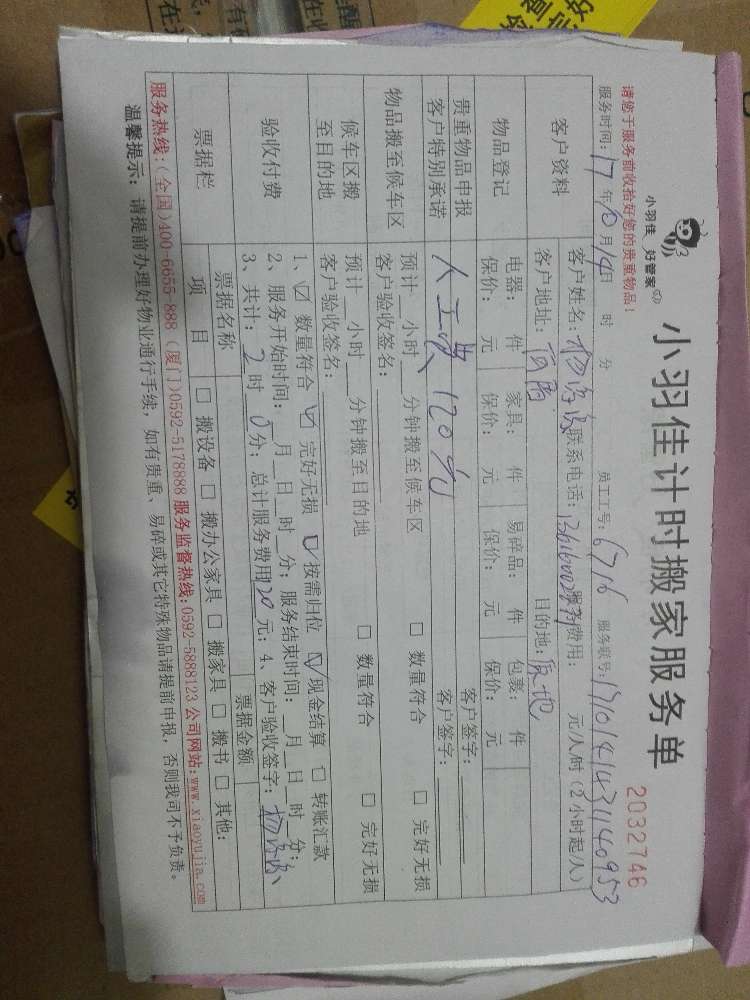 小羽佳 好管家
小羽佳计时搬家服务单
2032746
请您于服务前收拾好您的贵重物品！
服务时间：17年10月14日 时 分 员工工号：6716 服务账号：
客户资料 客户姓名： 联系电话： 服务费用： 元/人/时（2小时起/人）
客户地址： 目的地：原地
物品登记 电器： 件 家具： 件 易碎品： 件 包裹： 件
保价： 元 保价： 元 保价： 元 保价： 元
贵重物品申报 客户签字：
客户特别承诺 人工费120元 客户签字：
物品搬至候车区 预计__小时__分钟搬至候车区 □ 数量符合 □ 完好无损
客户验收签名：
候车区搬至目的地 预计__小时__分钟搬至目的地 □ 数量符合 □ 完好无损
客户验收签名：
验收付费 1、☑ 数量符合 ☑ 完好无损 ☑ 按需归位 ☑ 现金结算 □ 转账汇款
2、服务开始时间：__月__日__时__分；服务结束时间：__月__日__时__分；
3、共计：2时0分；总计服务费用120元；4、客户验收签字：
票据栏 票据名称 票据金额
项目 □ 搬设备 □ 搬办公家具 □ 搬家具 □ 搬书 □ 其他：
服务热线：（全国）400-6655-888（厦门）0592-5178888 服务监督热线：0592-5888123 公司网站：www.xiaoyujia.com
温馨提示：请提前办理好物业通行手续，如有贵重、易碎或其它特殊物品请提前申报，否则我司不予负责。